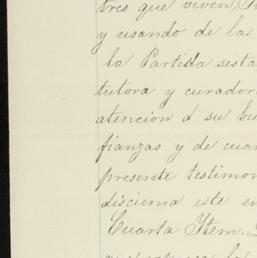 tres que viven,
y usando de las
la Partida sesta
tutora y curador
atencion á su bu
fianzas y de cua
presente testimon
discierna este en
Cuarta Item.